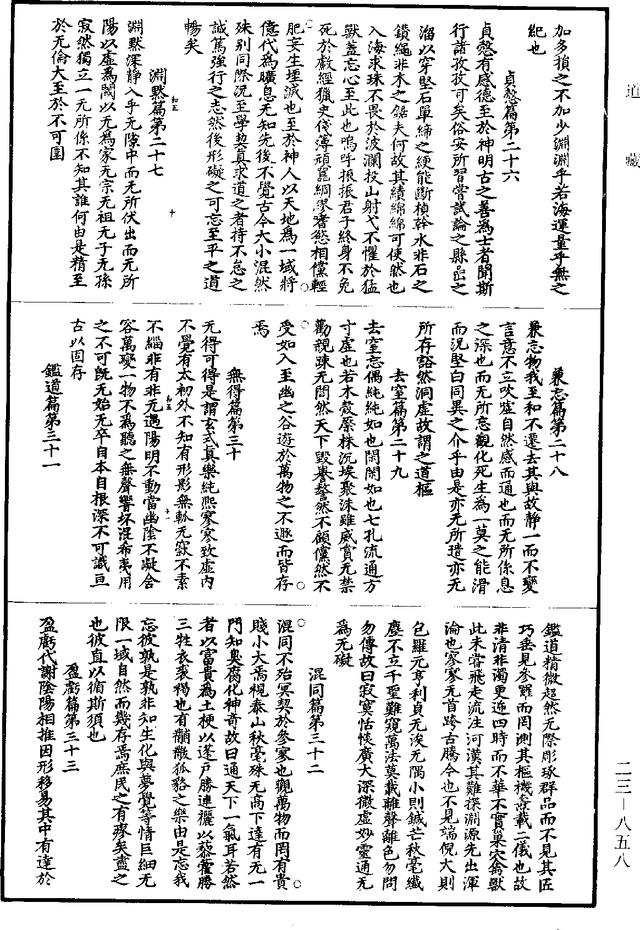 道藏
加多損之不加少淵淵乎若海運量乎無之
紀也
貞慤篇第二十六
貞慤有感德至於神明古之善為士者聞斯
行諸孜孜可矣俗安所習嘗試論之縣嵒之
溜以穿堅石單締之綆能斷楨幹水非石之
鑽繩非木之鋸夫何故其績綿綿可使然也
入海求珠不畏於波瀾投山射弋不懼於猛
獸蓋忘心至此也嗚呼振振君子終身不免
死於獻經獵史伐薄頑嚚綢繆耆慾相儻輕
肥妄生埋滅也至於神人以天地為一域將
億代為曠息无知先後不覺古今大小混然
殊別同際況至學契真求道之者持不怠之
誠篤強行之志然後形礙之可忘至平之道
暢矣
淵默篇第二十七
淵默深靜入乎无隙中而无所伏出而无所
陽以虛為閾以无為家无宗无祖无子无孫
寂然獨立一无所係不知其誰何由是精至
於无倫大至於不可圍
兼忘篇第二十八
兼忘物我至和不還去其與故靜一而不變
言意不立吹噓自然感而通也而无所係息
之深也而无所忘觀化死生為一莫之能滑
而況堅白同異之介乎由是亦无所遣亦无
所存豁然洞虛故謂之道樞
去窒篇第二十九
去窒忘偶純純如也閑閑如也七孔流通方
寸虛也若木㲉橜株沉埃聚沫雖威賞无禁
勸視聽无間然天下毀譽謷然不顧儻然不
受如入至幽之谷遊於萬物之不遯而皆存
焉
無得篇第三十
无得可得是謂玄式真樂純熙寥寥致虛內
不覺有太初外不知有形影無軱无竅不素
不緇非有非无遇陽明不動當幽陰不凝合
容萬變一物不為聽之無聲響坏混希夷用
之不可既无始无卒自本自根深不可識亘
古以固存
鑑道篇第三十一
鑑道精微超然无際彫琢群品而不見其匠
巧垂見參羅而罔測其樞機㤗載二儀也故
非清非濁更迎四時而不華不實巢穴禽獸
此未嘗飛走流注河漢其難探淵源先出渾
淪也寥寥无首跨古騰今也不見端倪大則
包羅元亨利貞无涘无隅小則鋮芒秋毫纖
塵不立千聖難窺萬法莫載離聲離色勿問
勿傳故曰寂寞恬惔廣大深微虛妙靈通无
為无礙
混同篇第三十二
混同不殆冥契於參寥也觀萬物而罔有貴
賤小大喬視泰山秋毫殊无高下達有无一
門知臭腐化神奇故曰通天下一氣耳若然
者以富貴為土梗以蓬戶勝連欐以藜藿勝
三牲衣裘褐也有䎘䎘狐貉之樂由是忘我
忘彼孰是孰非知生化與夢覺等情巨細无
限一域自然而幾存焉庶民之有瘳矣盍之
也彼直以循斯須也
盈虧篇第三十三
盈虧代謝陰陽相推因形移易其中有達於
二三－八五八